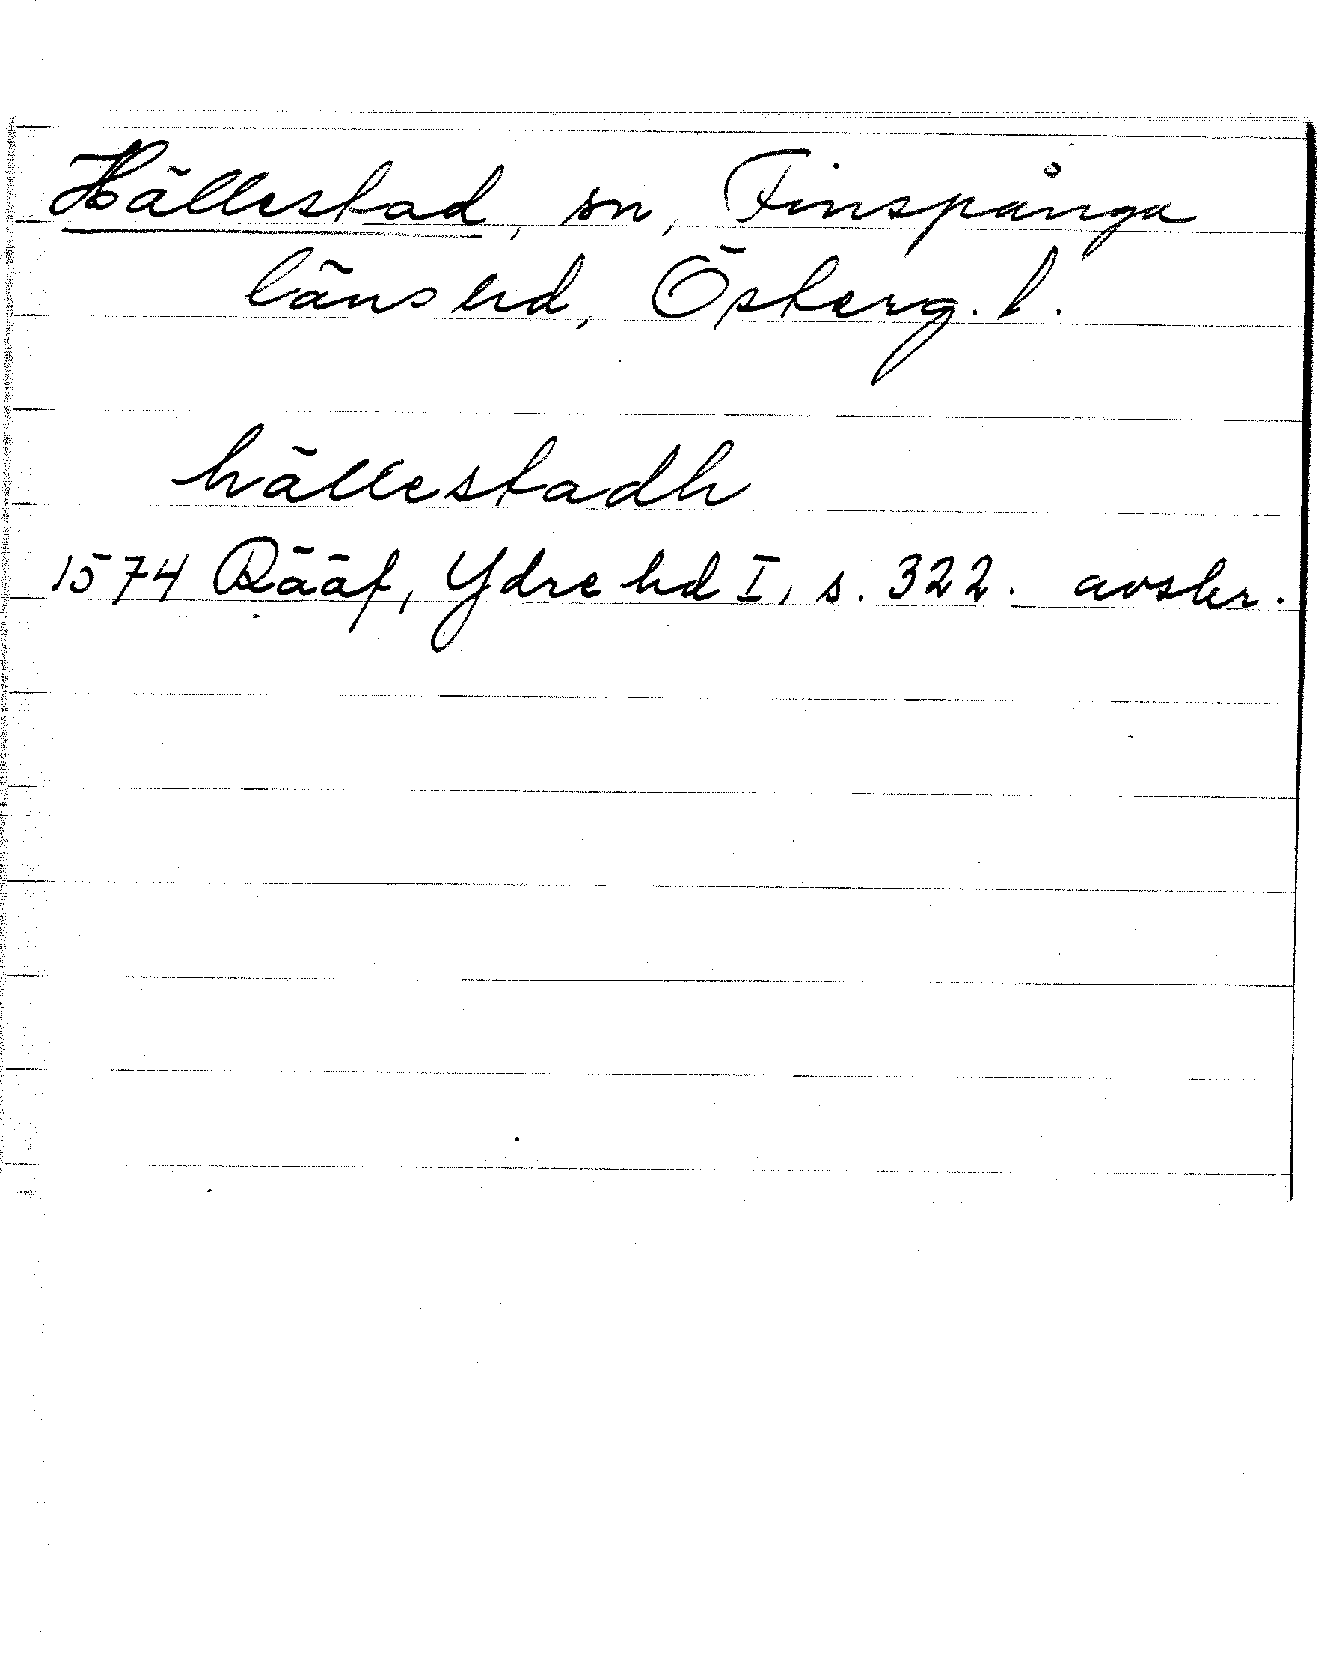 Hällestad, sn, Finspånga
läns hd, Österg. l.
hällestadh
1574 Rääf, Ydre hd I, s. 322. avskr.